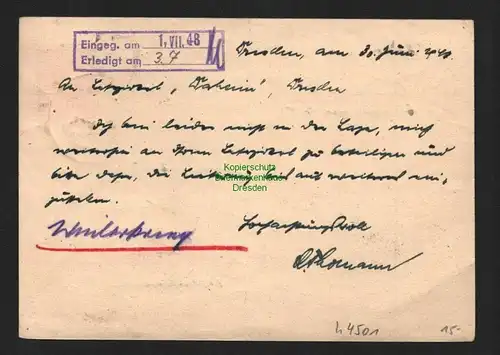 Eingeg. am 1. VII. 48
Erledigt am 3.7
Dresden, am 30. Juni 1948.
An Lesezirkel „Daheim“, Dresden
Ich bin leider nicht in der Lage, mich
weiterhin an Ihrem Lesezirkel zu beteiligen und
bitte daher, die Lieferung bis auf weiteres ein-
zustellen.
Kopierschutz
Dresden
Hochachtungsvoll
h 4501
15.-